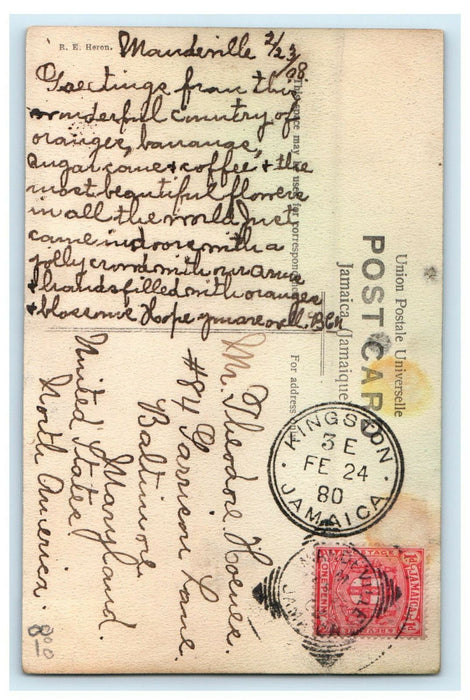 R. E. Heron.
Mandeville 2/23/08.
Greetings from this
wonderful country of
oranges, bananas,
sugar cane & coffee & the
most beautiful flowers
in all the world. Just
came indoors with a
jolly crowd with our arms
& hands filled with oranges
& blossoms. Hope you are well.
This space may be used for correspondence
Union Postale Universelle
POST CARD
Jamaica (Jamaique
For address
Mr. Theodore
#84 Garrison Lane.
Baltimore
Maryland.
United States
North America.
KINGSTON
3 E
FE 24
80
JAMAICA
MANDEVILLE
JAMAICA
POSTAGE
1d JAMAICA 1d
8.00